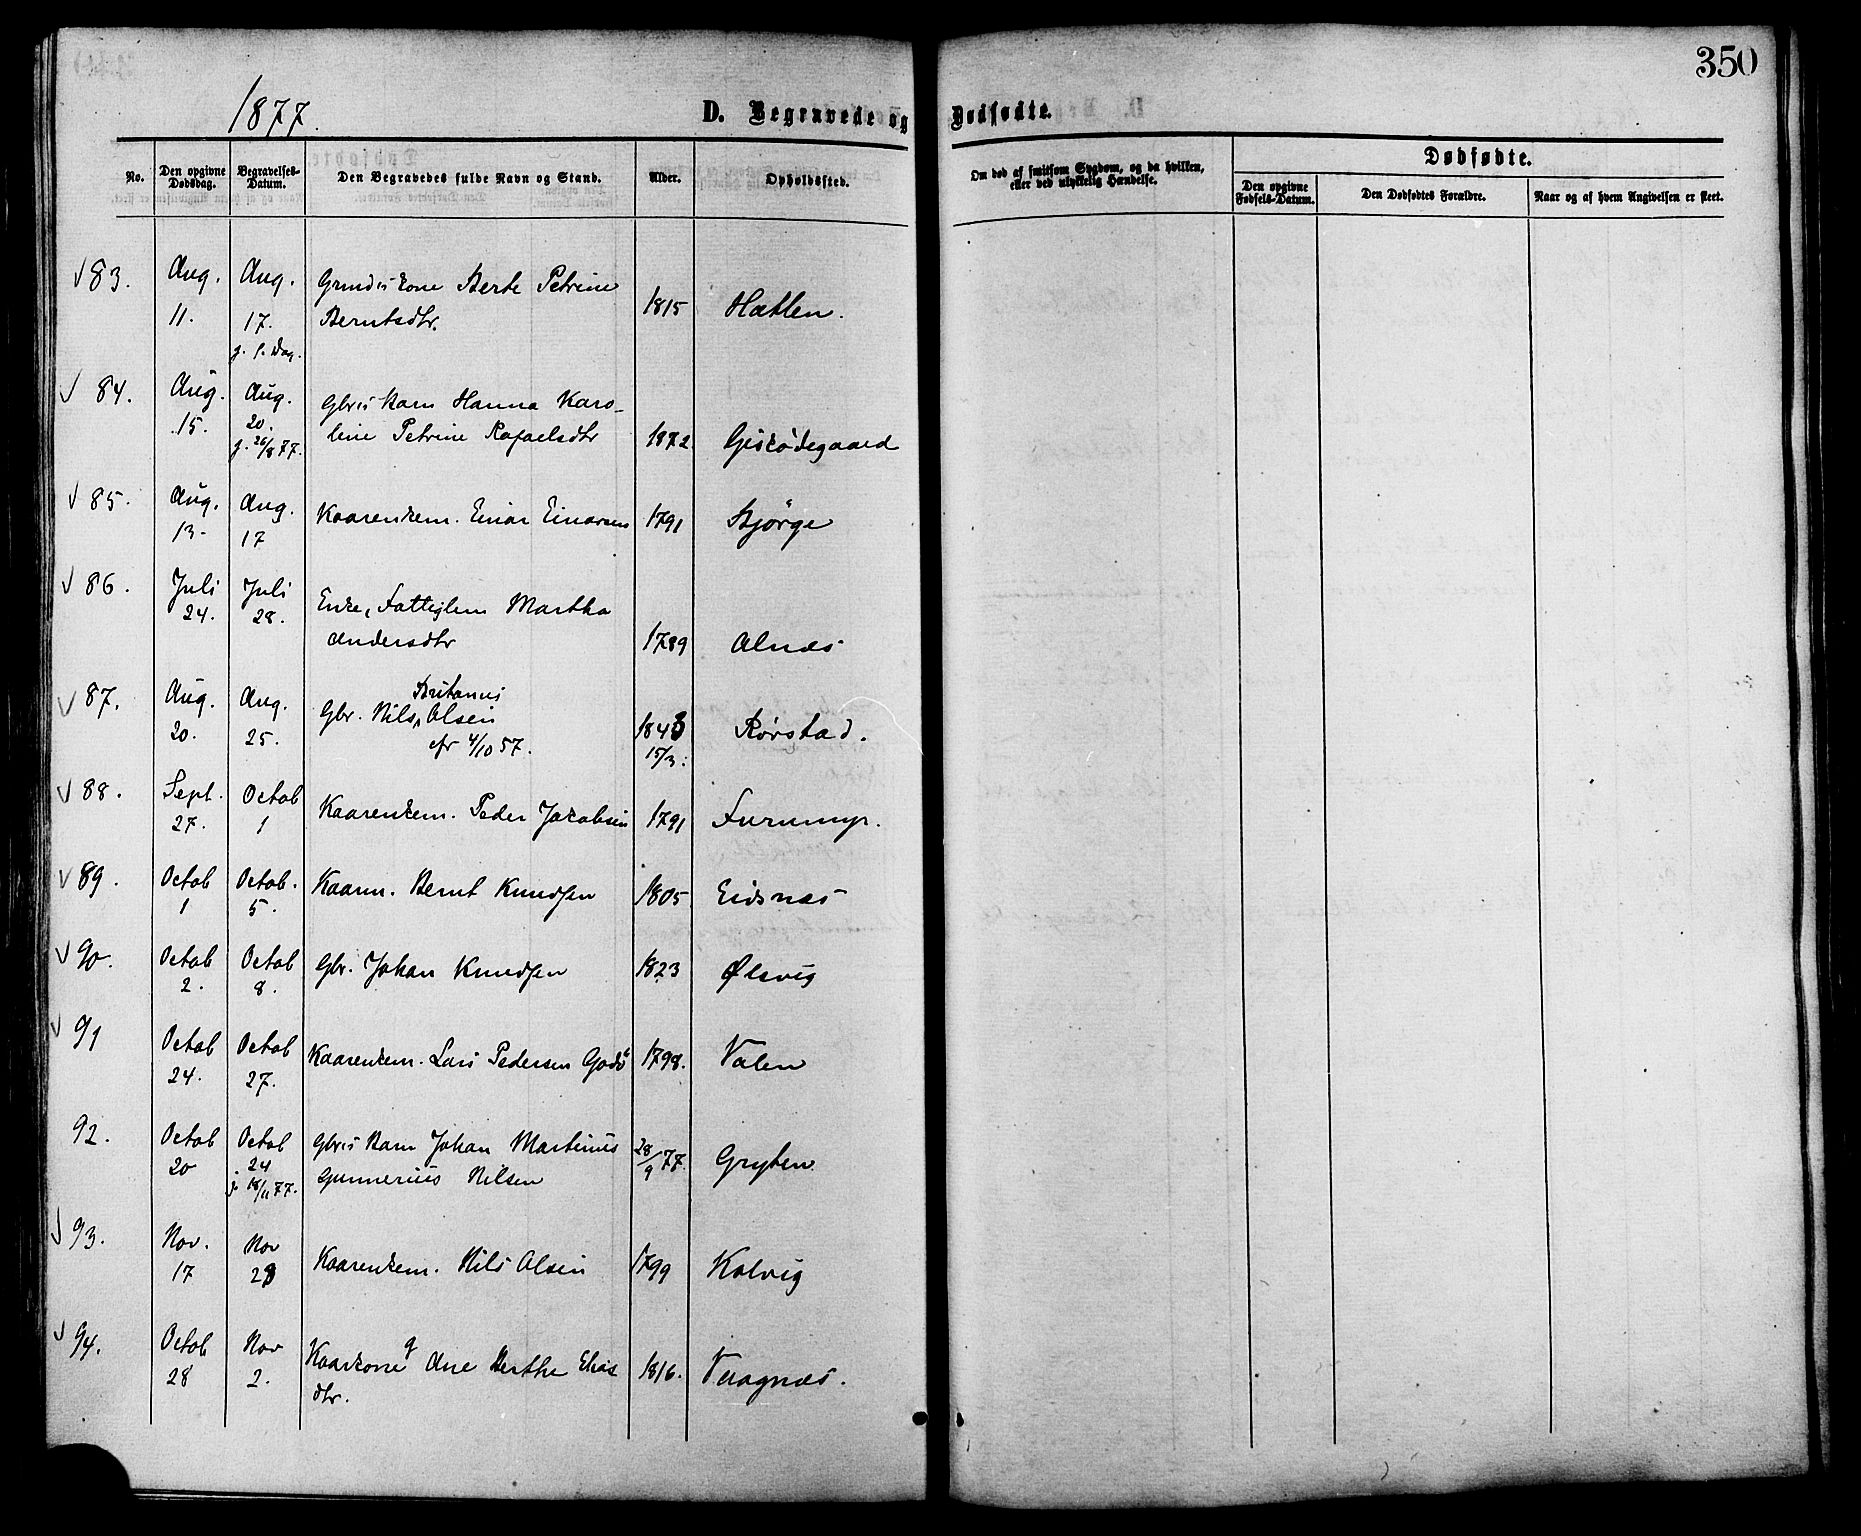 350
1877.
D. Begravede og Dødfødte.
No. Den opgivne Dødsdag. Begravelses-Datum. Den Begravedes fulde Navn og Stand. Alder. Opholdssted. Om død af smitsom Sygdom, og da hvilken, eller ved ulykkelig Hændelse. Dødfødte.
Den opgivne Fødsels-Datum. Den Dødfødtes Forældre. Naar og af hvem Angivelsen er skeet.
√ 83. Aug. Aug. Grmds kone Berte Petrine
11. 17. Berntsdtr. 1815 Hatlen.
j. s. Dag.
√ 84. Aug. Aug. Gbrs Barn Hanna Karo-
15. 20. line Petrine Rafaelsdtr 1872. Giskødegaard
j. 26/8 77.
√ 85. Aug. Aug. Kaarenkem. Einar Einarsen 1791 Skjørge
13. 17
√ 86. Juli Juli Enke, Fattiglem Martha
24. 28. Andersdtr 1789 Alnæs
Britanus
√ 87. Aug. Aug. Gbr. Nils, Olsen 1843 Rørstad.
20. 25. cfr 4/10 57. 15/3.
√ 88. Sept. Octob Kaarenkem. Peder Jakobsen 1791 Furumyr.
27. 1
√ 89. Octob Octob. Kaarm. Bernt Knudsen 1805 Eidsnæs
1 5.
√ 90. Octob Octob Gbr. Johan Knudsen 1823 Ølsvig
2. 8.
√ 91 Octob Octob Kaarenkem. Lars Pedersen Godø 1798. Valen
24. 27.
92. Octob Octob Gbrs Barn Johan Martinus 28/9 77. Gryten
20 24 Gunnerius Nilsen
j. 18/11 77.
√ 93. Nov. Nov Kaarenkem. Nils Olsen 1799 Kalvig
17 23
√ 94. Octob Nov Kaarkone Ane Berthe Elias 1816. Vaagnæs.
28 2. dtr.